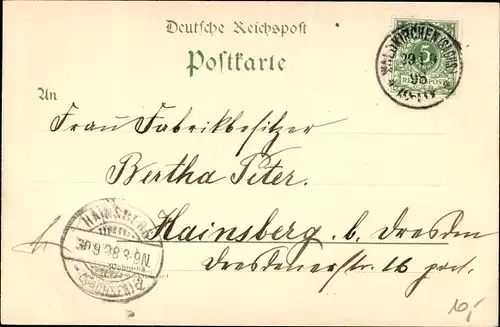 Deutsche Reichspost
Postkarte
WALDKIRCHEN (SACHS)
29 / 9
98
5
REICHSPOST
An
Frau Fabrikbesitzer
Bertha Peter.
Hainsberg b. Dresden
Dresdenerstr. 16 part.
HAINSBERG
30.9.98.8-9N
(SACHSEN)
10,-